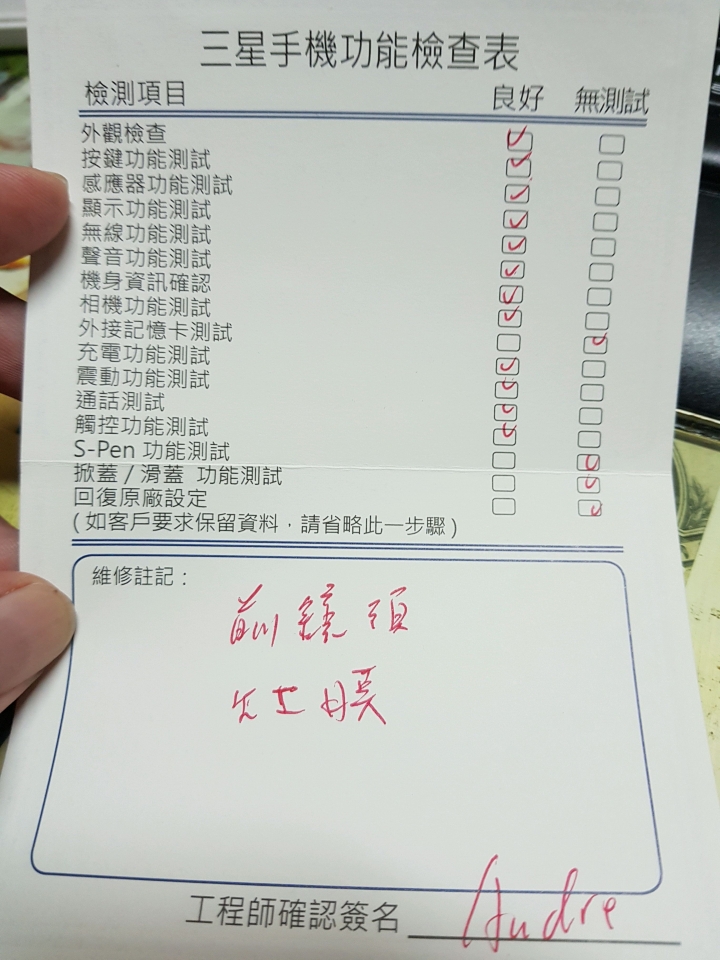 三星手機功能檢查表
檢測項目 良好 無測試
外觀檢查
按鍵功能測試
感應器功能測試
顯示功能測試
無線功能測試
聲音功能測試
機身資訊確認
相機功能測試
外接記憶卡測試
充電功能測試
震動功能測試
通話測試
觸控功能測試
S-Pen 功能測試
掀蓋/滑蓋 功能測試
回復原廠設定
(如客戶要求保留資料，請省略此一步驟)
維修註記：
前鏡頭
工程師確認簽名 Andre